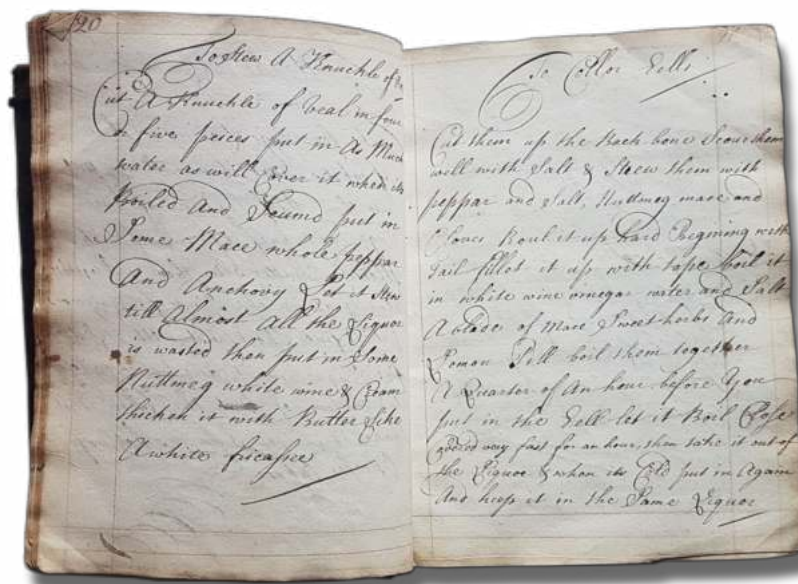 20
To Stew A Knuckle of
Cut A Knuckle of Veal in four
or five peices put in As Much
water as will Cover it when its
Boiled And Scumd put in
Some Mace whole peppar
And Anchovy Let it Stew
till Almost All the Liquor
is wasted then put in Some
Nuttmeg white wine & Cream
thicken it with Butter Like
A white fricassee
To Collor Eells
Cut them up the Back bone Scour them
well with Salt & Strew them with
peppar and Salt, Nuttmeg mace and
Cloves Roul it up hard Begining with
tail fillet it up with tape boil it
in white wine vinegar water and Salt
A blades of Mace Sweet herbs And
Lemon Pill boil them together
A Quarter of An hour before You
put in the Eell let it Boil Close
Covered very fast for an hour, then take it out of
the Liquor & when its Cold put in Again
And keep it in the Same Liquor